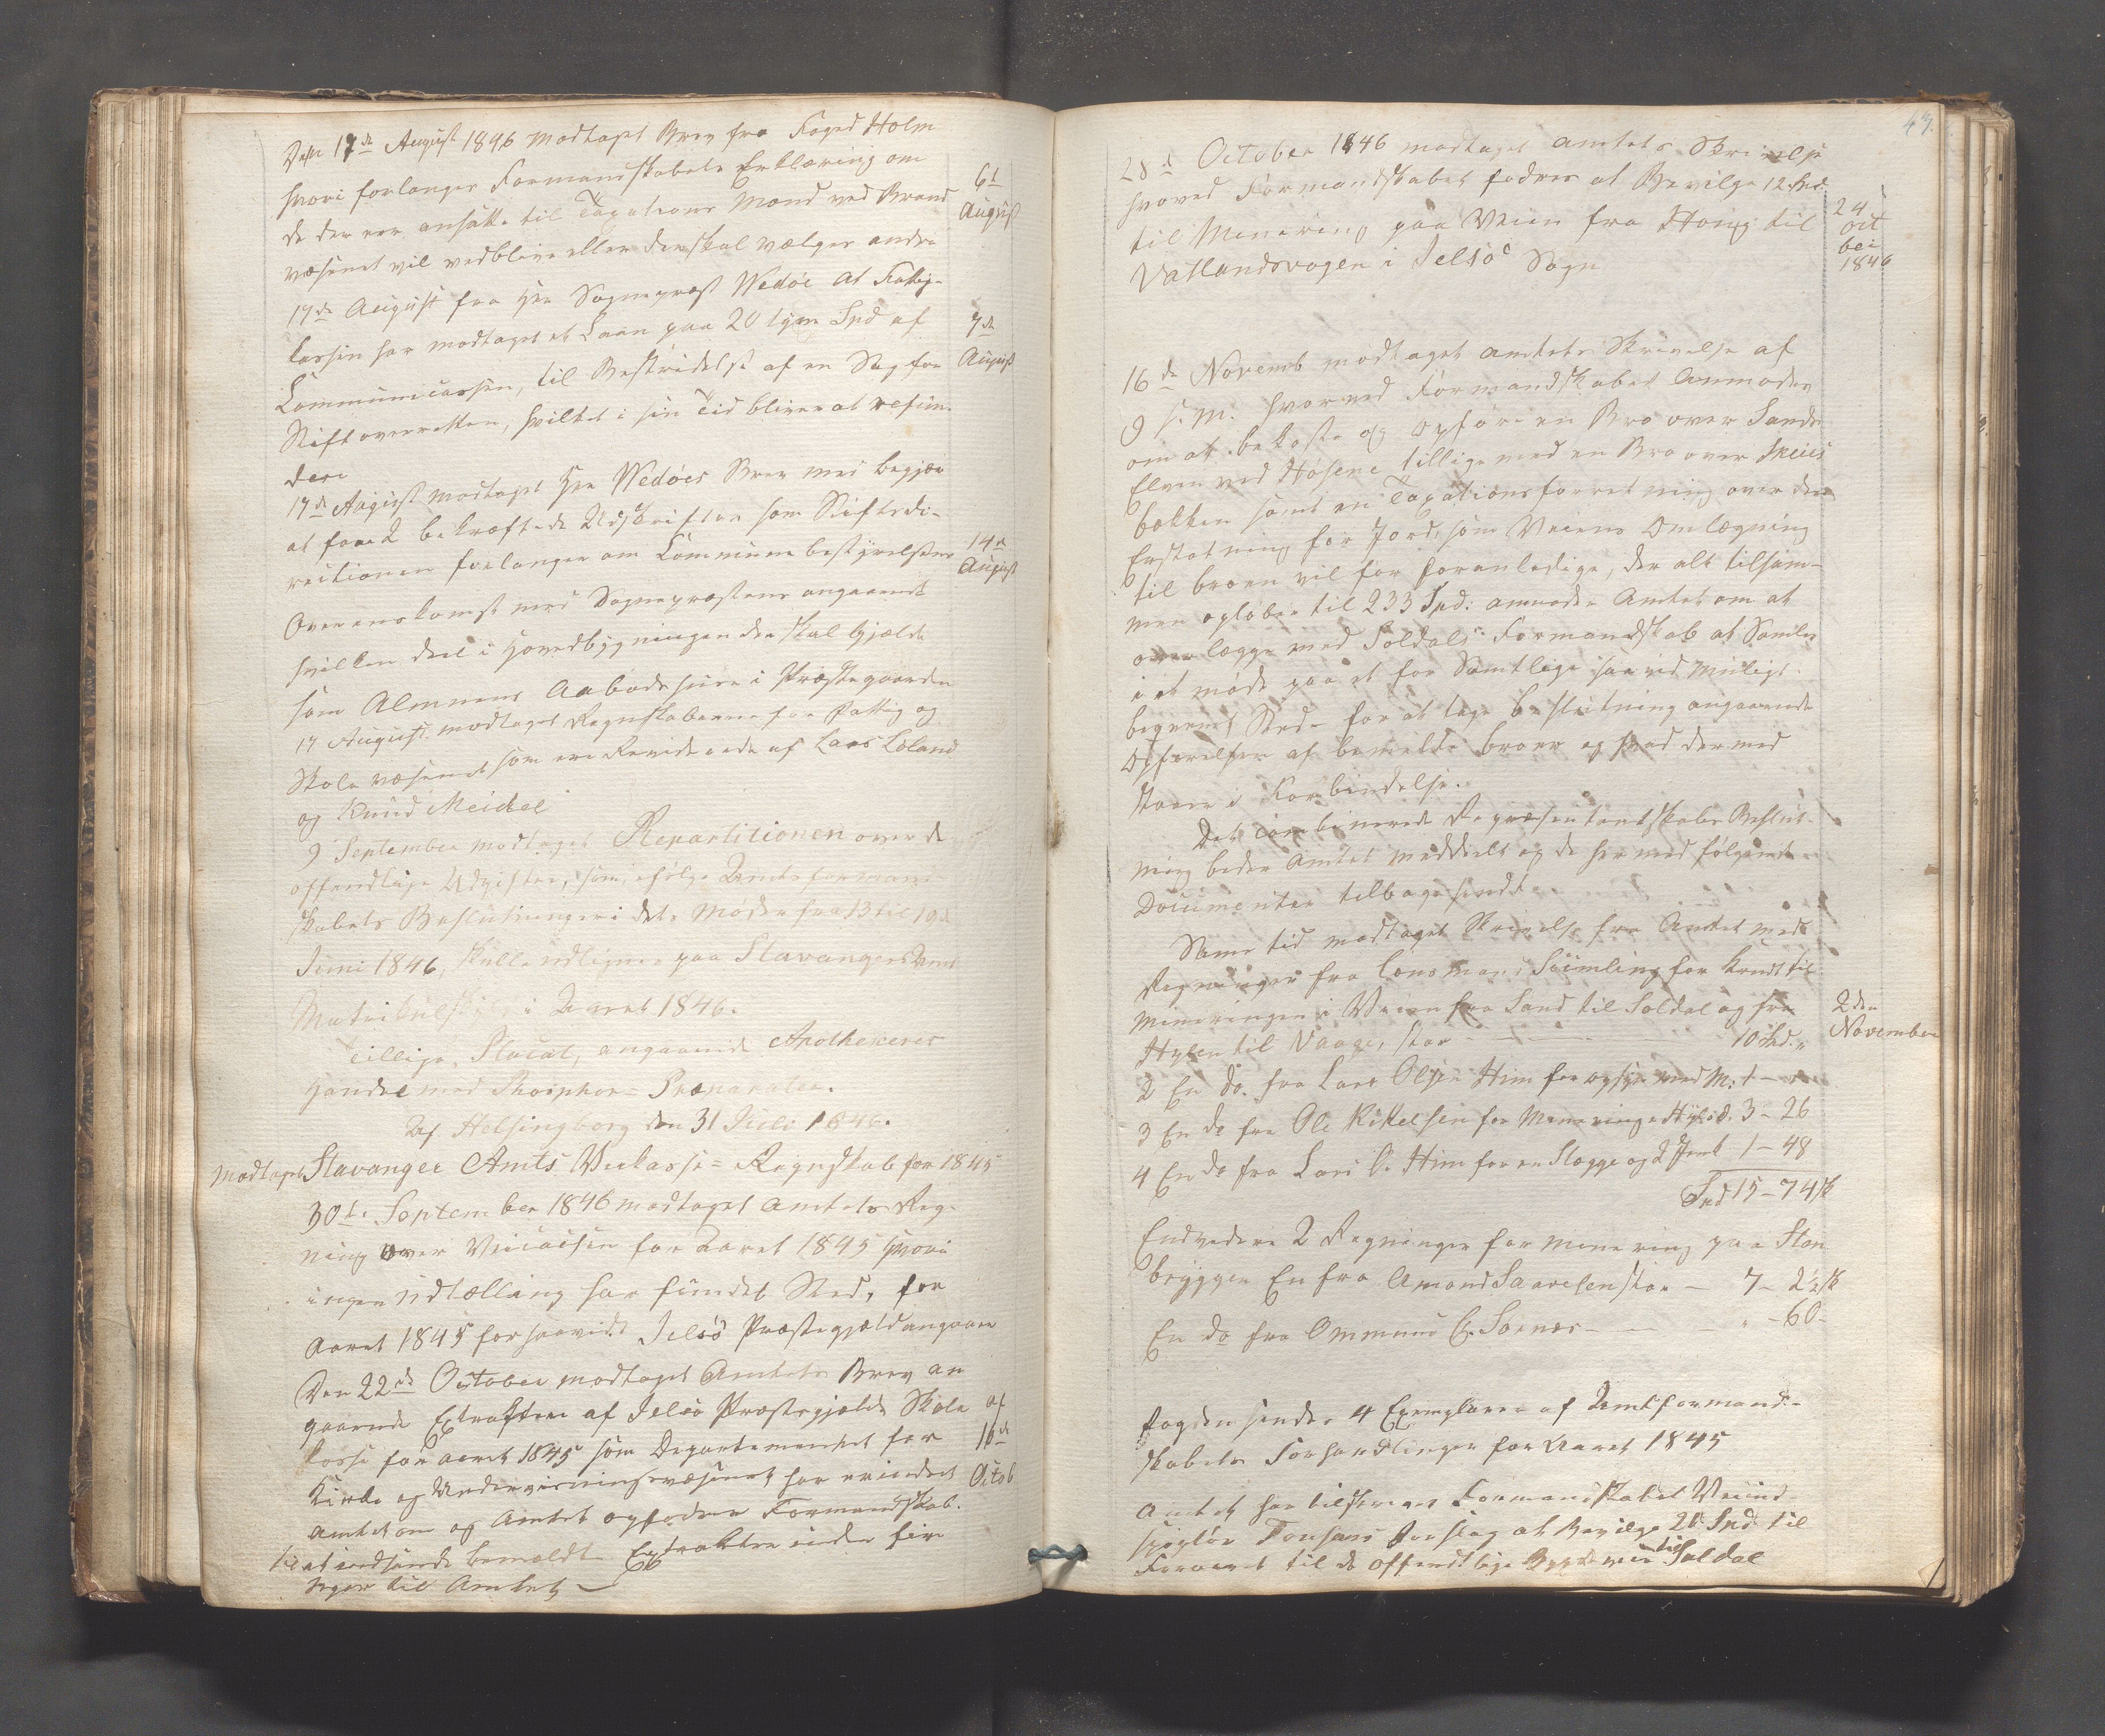 Den 17de August 1846 modtaget Brev fra Foged Holm
hvori forlanges Formandskabets Erklæring om
de der ere ansatte til Taxations Mænd ved Brand
væsenet vil vedblive eller der skal vælges andre
6t
August
17de August fra Hr Sognepræst Wedøe at Fattig-
kassen har modtaget et Laan paa 20 tyve Spd af
Communecassen, til Bestridelse af en Sag for
Stiftoverretten, hvilket i sin Tid bliver at refun-
dere
7de
August
17de August modtaget Hr Wedøes Brev med begjær
at faae 2 bekræftede Udskrifter som Stiftsdi-
rectionen forlanger om Communebestyrelsens
Overenskomst med Sognepræsten angaaende
hvilken deel i Hovedbygningen der skal gjælde
som Almuens Aabodshuse i Præstegaarden
14de
August
17 August modtaget Regnskaberne for Fattig og
Skolevæsenet som ere Reviderede af Lars Løland
og Knud Meidel
9 September modtaget Repartitionen over de
offendtlige Udgifter, som ifølge Amtsformand-
skabets Beslutninger i dets Møder fra 13 til 19de
Juni 1846, skulle udlignes paa Stavangers Amts
Matrikulskyld i Aaret 1846.
Tillige Placat, angaaende Apothekeres
Handel med Phosphor-Præparater.
Af Helsingborg den 31 Juli 1846.
Modtaget Stavanger Amts Veikasse-Regnskab for 1845
30te September 1846 modtaget Amtets Reg-
ning over Veicassen for Aaret 1845 hvori
ingen Udtælling har fundet Sted, for
Aaret 1845 forsaavidt Jelsø Præstegjæld angaaer
Den 22de October modtaget Amtets Brev an
gaaende Extrakten af Jelsø Præstegjælds Skole
kasse for aaret 1845 som Departementet for
Kirke og Undervisningsvæsenet har erindret
Amtet om og Amtet opfodrer Formandskab.
til at indsende bemeldte Extrakt inden fire
Uger til Amtet
af
16de
Octob
47.
28de October 1846 modtaget Amtets Skrivelse
hvoved Formandskabet fodres at Bevilge 12 Spd
til Minering paa Veien fra Hong til
Vatlandsvagen i Jelsøe Sogn
24
oct
ber
1846
16de Novemb modtaget Amtets Skrivelse af
9 s. M. hvorved Formandskabet Anmodes
om at bekoste og Opføre en Bro over Sands
Elven ved Høsene tillige med en Bro over Skeies
bækken samt en Taxationsforretning over den
Erstatning for Jord, som Veiens Omlægning
til broen vil for foranledige, der alt tilsam-
men opløber til 233 Spd: anmoder Amtet om at
overlægge med Soldals Formandskab at Samles
i et møde paa et for Samtlige saavid muligt
beqvemt Sted for at tage beslutning angaaende
Opførelsen af bemeldte broer og hvad dermed
staaer i Forbindelse.
Det combinerede Repræsentantskabs Beslut-
ning beder Amtet meddeelt og de hermed følgende
Documenter tilbagesendt
Same tid modtaget Skrivelse fra Amtet med
Regninger fra Lensmand Sømling for Krudt til
Mineringen i Veien fra Sand til Soldal og fra
Hylen til Vaage, stor - - - 10 Spd. "
2den
November
2 En do. fra Lars Olsen Him for opsyn med M: 1 -
3 En do fra Ole Kittelsen for Minering i Hylsd. 3 - 26
4 En do fra Lars O. Him for en Slægge og 2 1 - 48
Spd 15 - 74 sk
Endvidere 2 Regninger for minering paa Sten
bryggen En fra Amond Saavesen stor - 7 - 2 sk
En do fra Ommund E. Sørnes - - " - 60 -
Fogden sender 4 Exemplarer af Amtformand-
skabets Forhandlinger for Aaret 1845
Amtet har tilskrevet Formandskabet Veiind-
spectør Forslag at Bevilge 20 Spd til
til de offendtlige til Soldal